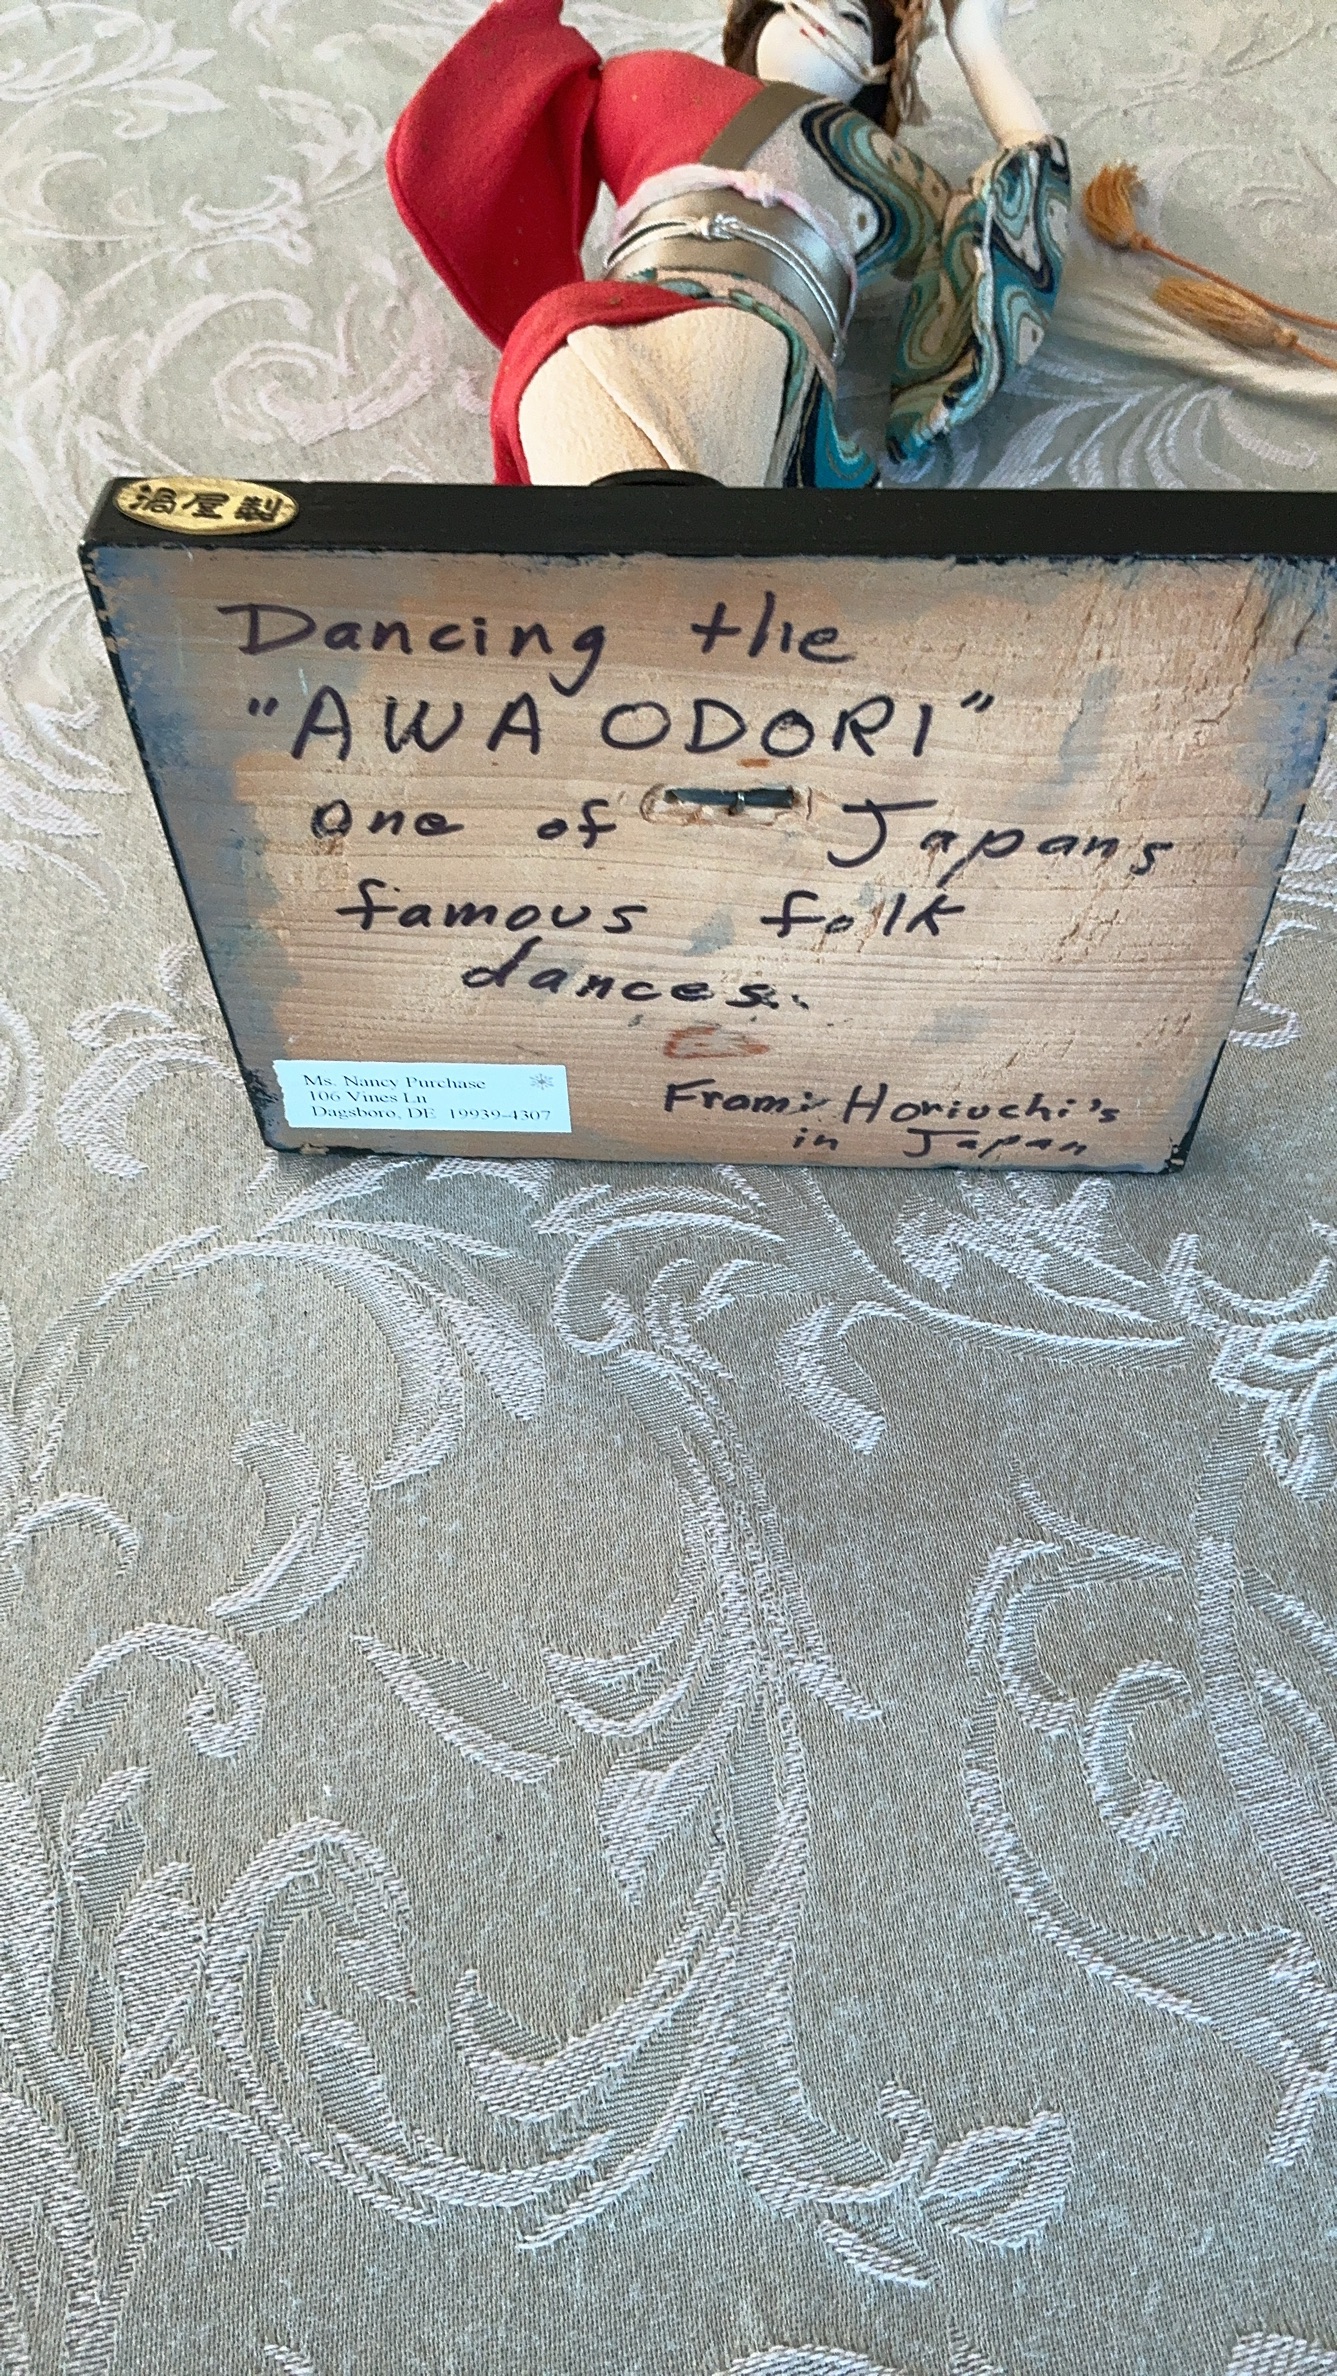 渦屋製
Dancing the
"AWA ODORI"
One of Japans
famous folk
dances.
From: Horiuchi's
in Japan
Ms. Nancy Purchase
106 Vines Ln
Dagsboro, DE 19939-4307